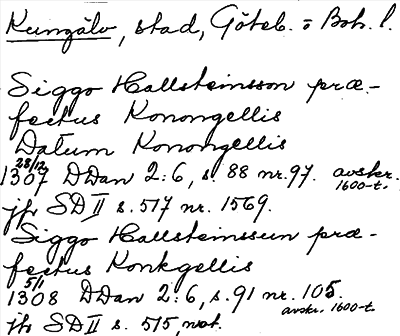 Kungälv, stad, Göteb. o Boh. l.
Siggo Hallsteinsson præ-
fectus Konongellis
Datum Konongellis
28/12
1307 DDan 2:6, s. 88 nr. 97. avskr. 1600-t.
jfr SD II s. 517 nr. 1569.
Siggo Hallsteinssun præ-
fectus Konkgellis
5/1
1308 DDan 2:6, s. 91 nr. 105. avskr. 1600-t.
jfr SD II s. 515, not.